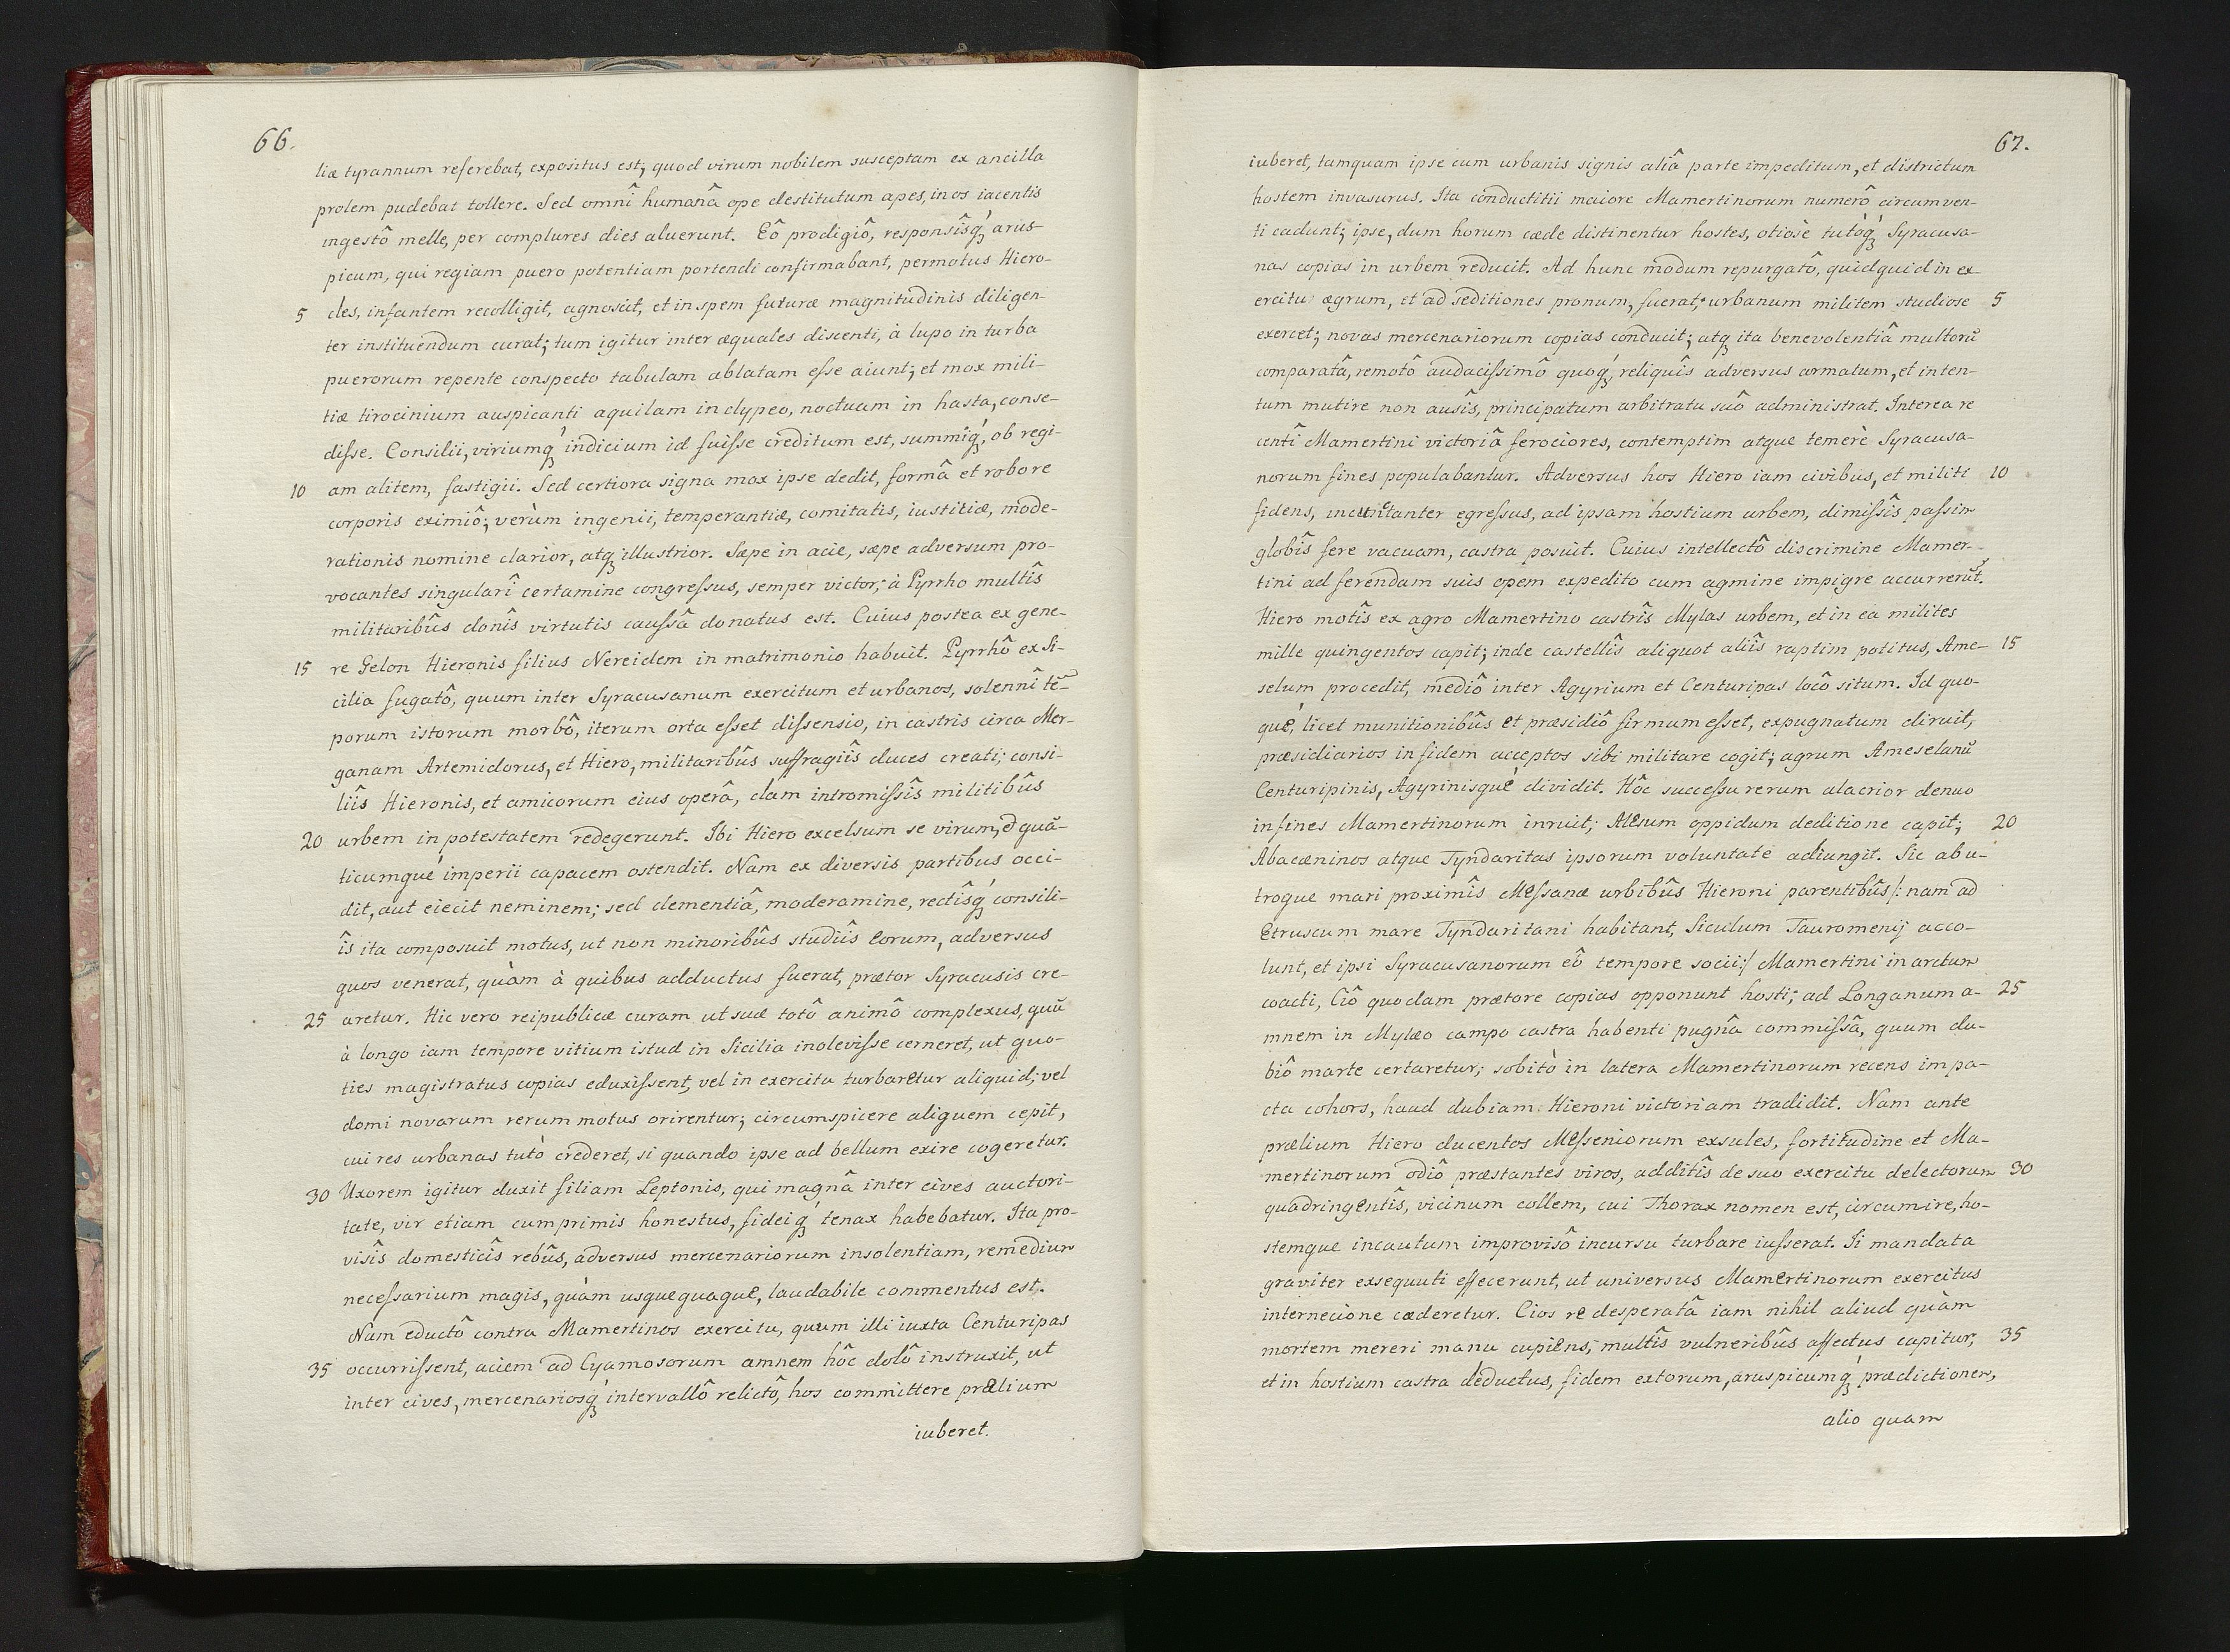 66.
liæ tyrannum referebat, expositus est; quod virum nobilem susceptam ex ancilla
prolem pudebat tollere. Sed omnî humanâ ope destitutum apes, in os iacentis
ingestô melle, per complures dies aluerunt. Eô prodigiô, responsîsq́ȝ arus-
picum, qui regiam puero potentiam portendi confirmabant, permotus Hiero-
5 cles, infantem recolligit, agnoscit, et in spem futuræ magnitudinis diligen-
ter instituendum curat; tum igitur inter æquales discenti, à lupo in turba
puerorum repente conspecto tabulam ablatam esse aiunt; et mox mili-
tiæ tirocinium auspicanti aquilam in clypeo, noctuam in hasta, conse-
disse. Consilii, viriumq́ȝ indicium id fuisse creditum est, summiq́ȝ, ob regi-
10 am alitem, fastigii. Sed certiora signa mox ipse dedit, formâ et robore
corporis eximiô; verùm ingenii, temperantiæ, comitatis, iustitiæ, mode-
rationis nomine clarior, atqȝ illustrior. Sæpe in acie, sæpe adversum pro-
vocantes singularî certamine congressus, semper victor; à Pyrrho multîs
militaribûs donîs virtutis caussâ donatus est. Cuius postea ex gene-
15 re Gelon Hieronis filius Nereidem in matrimonio habuit. Pyrrhô ex Si-
cilia fugatô, quum inter Syracusanum exercitum et urbanos, solennî tē-
porum istorum morbô, iterum orta esset dissensio, in castris circa Mer-
ganam Artemidorus, et Hiero, militaribûs suffragiîs duces creati; consi-
liîs Hieronis, et amicorum eius operâ, clam intromissîs militibûs
20 urbem in potestatem redegerunt. Ibi Hiero excelsum se virum, & quā-
ticumqué imperii capacem ostendit. Nam ex diversis partibus occi-
dit, aut eiecit neminem; sed clementiâ, moderamine, rectîsq́ȝ consili-
îs ita composuit motus, ut non minoribûs studiîs eorum, adversus
quos venerat, quàm à quibus adductus fuerat, prætor Syracusis cre-
25 aretur. Hic vero reipublicæ curam ut suæ totô animô complexus, quū
à longo iam tempore vitium istud in Sicilia inolevisse cerneret, ut quo-
ties magistratus copias eduxissent, vel in exercitu turbaretur aliquid; vel
domi novarum rerum motus orirentur; circumspicere aliquem cepit,
cui res urbanas tutò crederet, si quando ipse ad bellum exire cogeretur.
30 Uxorem igitur duxit filiam Leptonis, qui magnâ inter cives auctori-
tate, vir etiam cumprimis honestus, fideiq́ȝ tenax habebatur. Ita pro-
visîs domesticîs rebûs, adversus mercenariorum insolentiam, remedium
necessarium magis, quàm usquequaque, laudabile commentus est.
Nam eductô contra Mamertinos exercitu, quum illi iuxta Centuripas
35 occurrissent, aciem ad Cyamosorum amnem hôc dolô instruxit, ut
inter cives, mercenariosq́ȝ intervallô relictô, hos committere prælium
iuberet.
67.
iuberet, tamquam ipse cum urbanis signis aliâ parte impeditum, et districtum
hostem invasurus. Ita conductitii maiore Mamertinorum numerô circumven-
ti cadunt; ipse, dum horum cæde distinentur hostes, otiosè tutòq́ȝ Syracusa-
nas copias in urbem reducit. Ad hunc modum repurgatô, quidquid in ex
ercitu ægrum, et ad seditiones pronum, fuerat; urbanum militem studiose 5
exercet; novas mercenariorum copias conducit; atqȝ ita benevolentiâ multorū
comparatâ, remotô audacissimô quoq́ȝ, reliquîs adversus armatum, et inten-
tum mutire non ausîs, principatum arbitratu suô administrat. Interea re
centî Mamertini victoriâ ferociores, contemptim atque temerè Syracusa-
norum fines populabantur. Adversus hos Hiero iam civibus, et militi 10
fidens, incunctanter egressus, ad ipsam hostium urbem, dimissîs passim
globîs fere vacuam, castra posuit. Cuius intellectô discrimine Mamer-
tini ad ferendam suis opem expedito cum agmine impigre accurrerūt.
Hiero motîs ex agro Mamertino castrîs Mylas urbem, et in ea milites
mille quingentos capit; inde castellîs aliquot aliîs raptim potitus, Ame- 15
selum procedit, mediô inter Agyrium et Centuripas locô situm. Id quo-
qué, licet munitionibûs et præsidiô firmum esset, expugnatum diruit;
præsidiarios in fidem acceptos sibi militare cogit; agrum Ameselanū
Centuripinis, Agyrinisqué dividit. Hôc successu rerum alacrior denuo
in fines Mamertinorum inruit; Alesum oppidum deditione capit; 20
Abacæninos atque Tyndaritas ipsorum voluntate adiungit. Sic ab u-
troque mari proximîs Messanæ urbibûs Hieroni parentibûs /: nam ad
Etruscum mare Tyndaritani habitant, Siculum Tauromenij acco-
lunt, et ipsi Syracusanorum eô tempore socii :/ Mamertini in arctum
coacti, Ciô quodam prætore copias opponunt hosti; ad Longanum a- 25
mnem in Mylæo campo castra habenti pugnâ commissâ, quum du-
biô marte certaretur; sobitò in latera Mamertinorum recens impa-
cta cohors, haud dubiam Hieroni victoriam tradidit. Nam ante
prælium Hiero ducentos Messeniorum exsules, fortitudine et Ma-
mertinorum odiô præstantes viros, additîs de suo exercitu delectorum 30
quadringentîs, vicinum collem, cui Thorax nomen est, circumire, ho-
stemque incautum improvisô incursu turbare iusserat. Ii mandata
graviter exsequuti effecerunt, ut universus Mamertinorum exercitus
internecione cæderetur. Cios re desperatâ iam nihil aliud quàm
mortem mereri manu cupiens, multîs vulneribûs affectus capitur; 35
et in hostium castra deductus, fidem extorum, aruspicumq́ȝ prædictionem,
alio quam